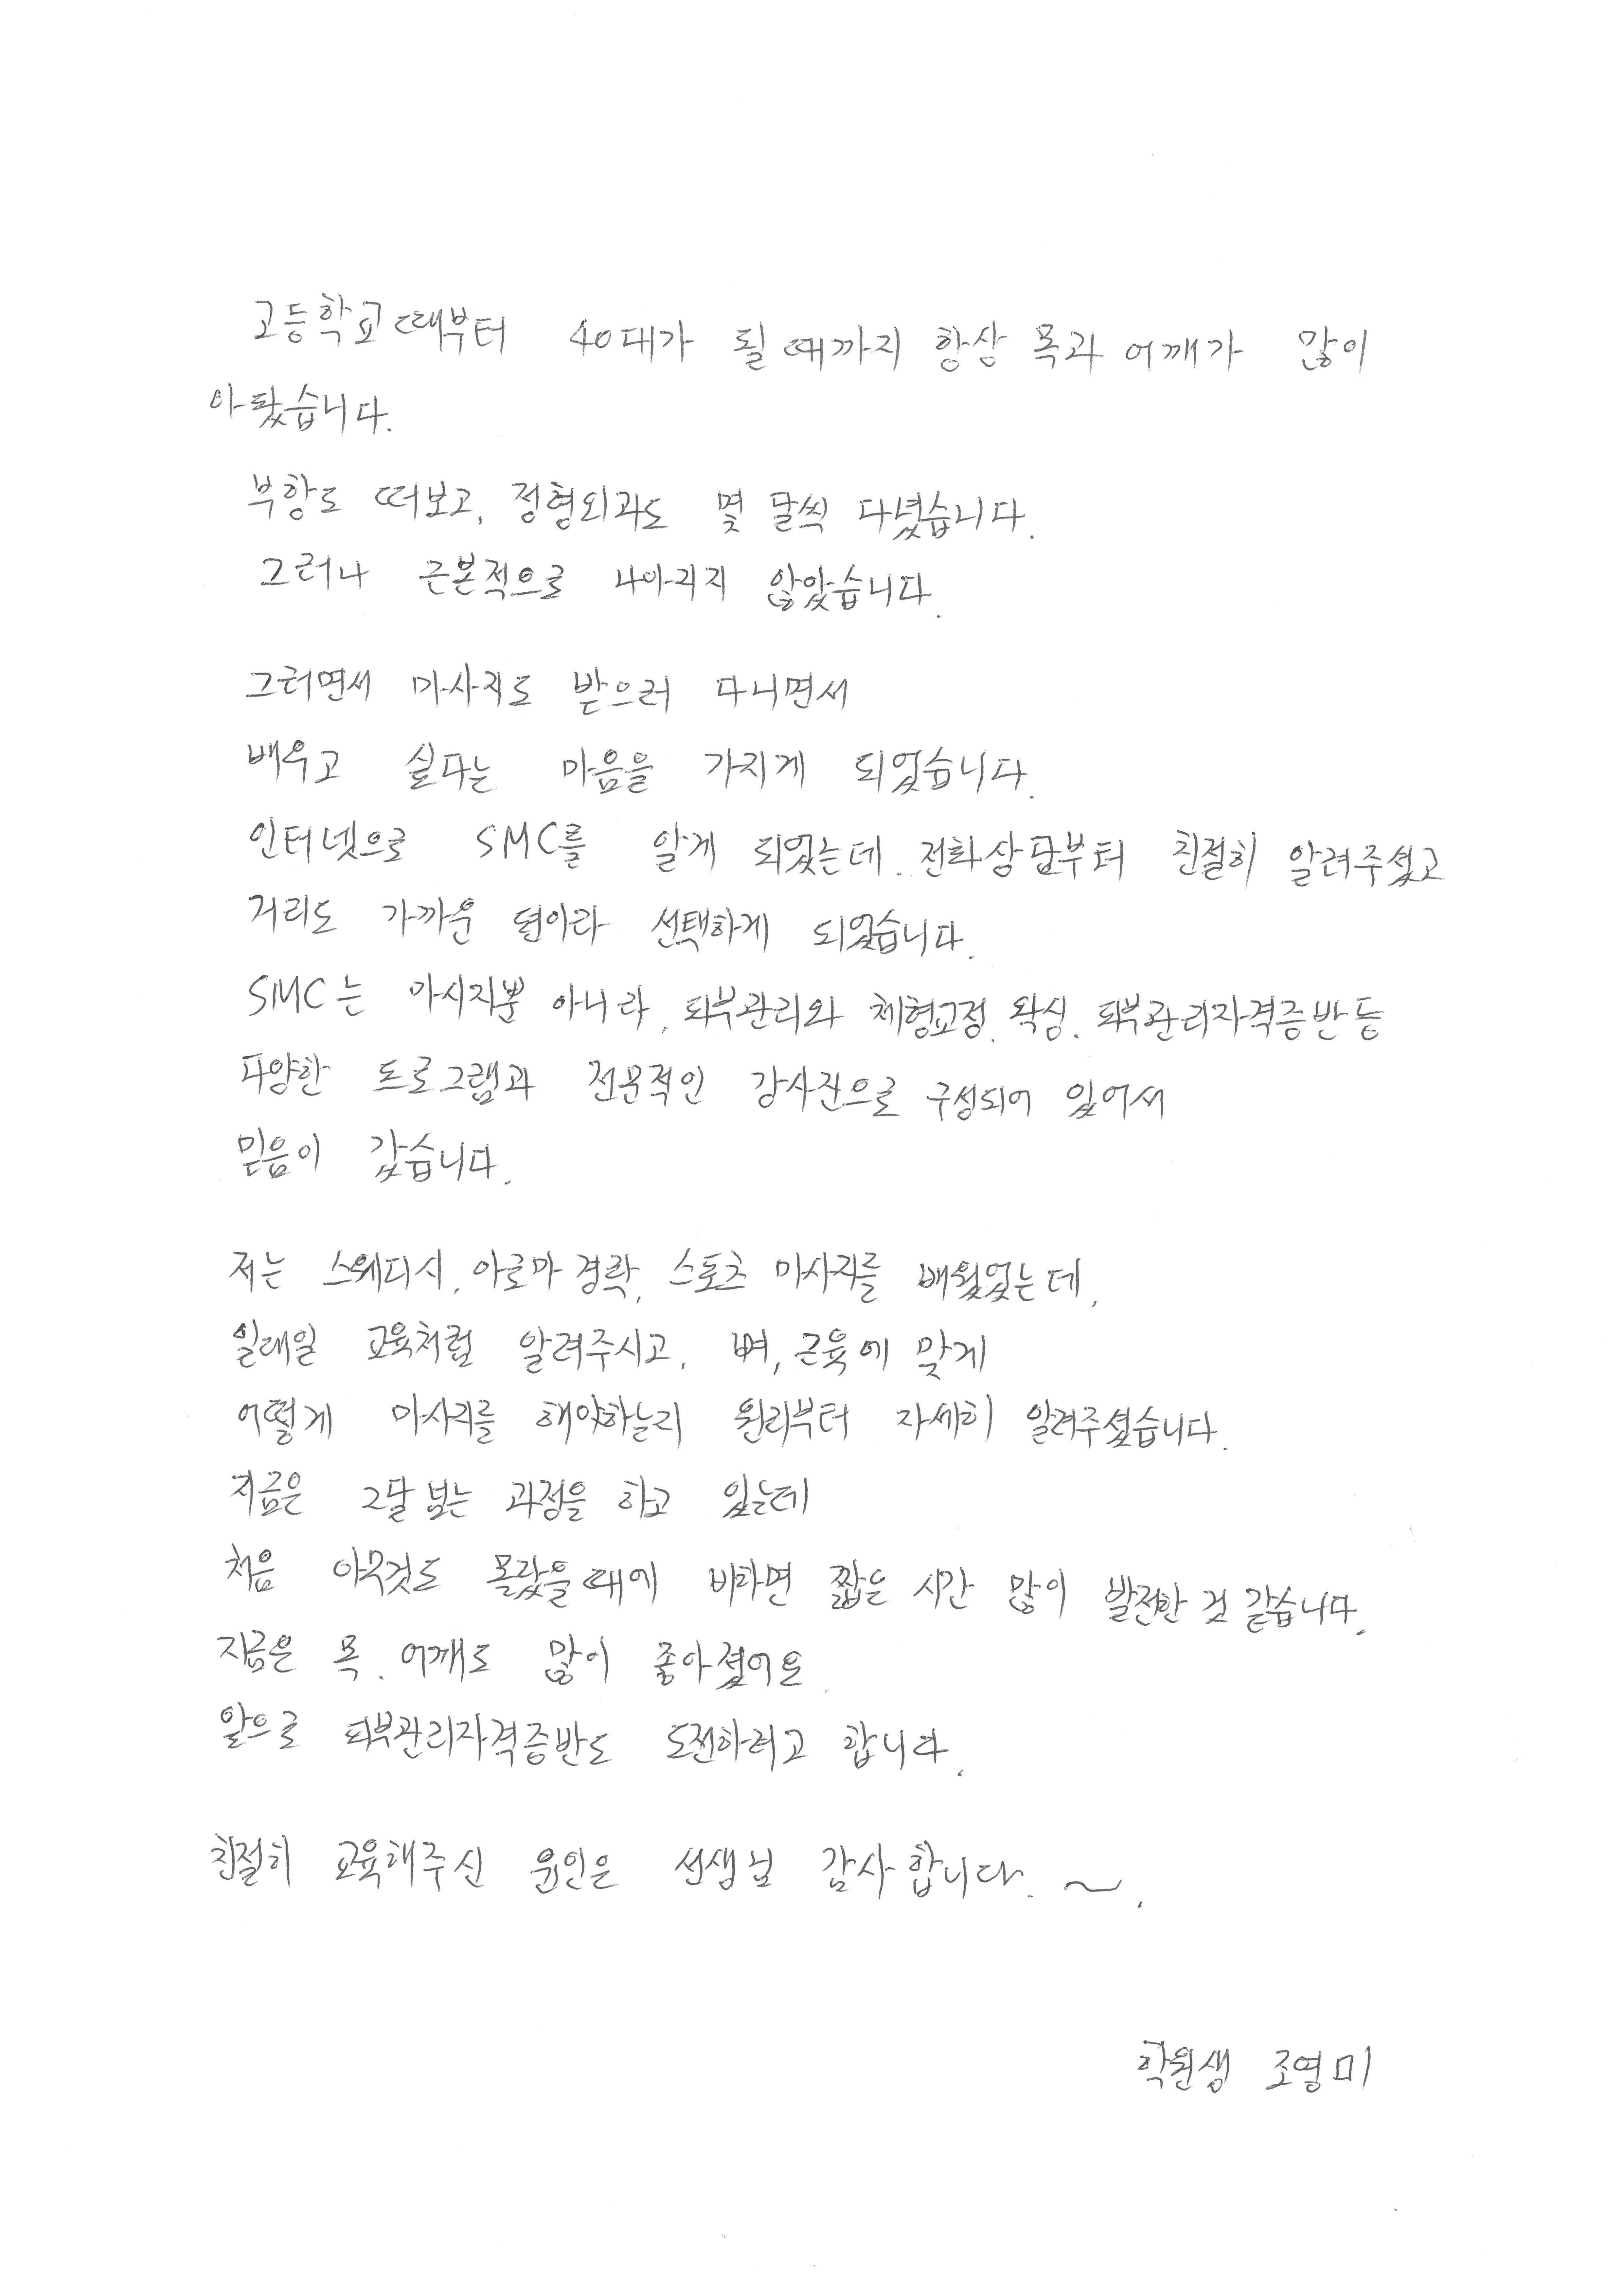 고등학교때부터 40대가 될 때까지 항상 목과 어깨가 많이
아팠습니다.
부항도 떠보고, 정형외과도 몇 달씩 다녔습니다.
그러나 근본적으로 나아지지 않았습니다.
그러면서 마사지도 받으러 다니면서
배우고 싶다는 마음을 가지게 되었습니다.
인터넷으로 SMC를 알게 되었는데. 전화상담부터 친절히 알려주셨고
거리도 가까운 편이라 선택하게 되었습니다.
SMC는 마사지뿐 아니라, 피부관리와 체형교정, 왁싱, 피부관리자격증반 등
다양한 프로그램과 전문적인 강사진으로 구성되어 있어서
믿음이 갔습니다.
저는 스웨디시, 아로마 경락, 스포츠 마사지를 배웠었는데,
일대일 교육처럼 알려주시고, 뼈, 근육에 맞게
어떻게 마사지를 해야하는지 원리부터 자세히 알려주셨습니다.
지금은 2달 넘는 과정을 하고 있는데
처음 아무것도 몰랐을때에 비하면 짧은 시간 많이 발전한 것 같습니다.
지금은 목, 어깨도 많이 좋아졌어요.
앞으로 피부관리자격증반도 도전하려고 합니다.
친절히 교육해주신 윤인은 선생님 감사합니다. ~.
학원생 조영미